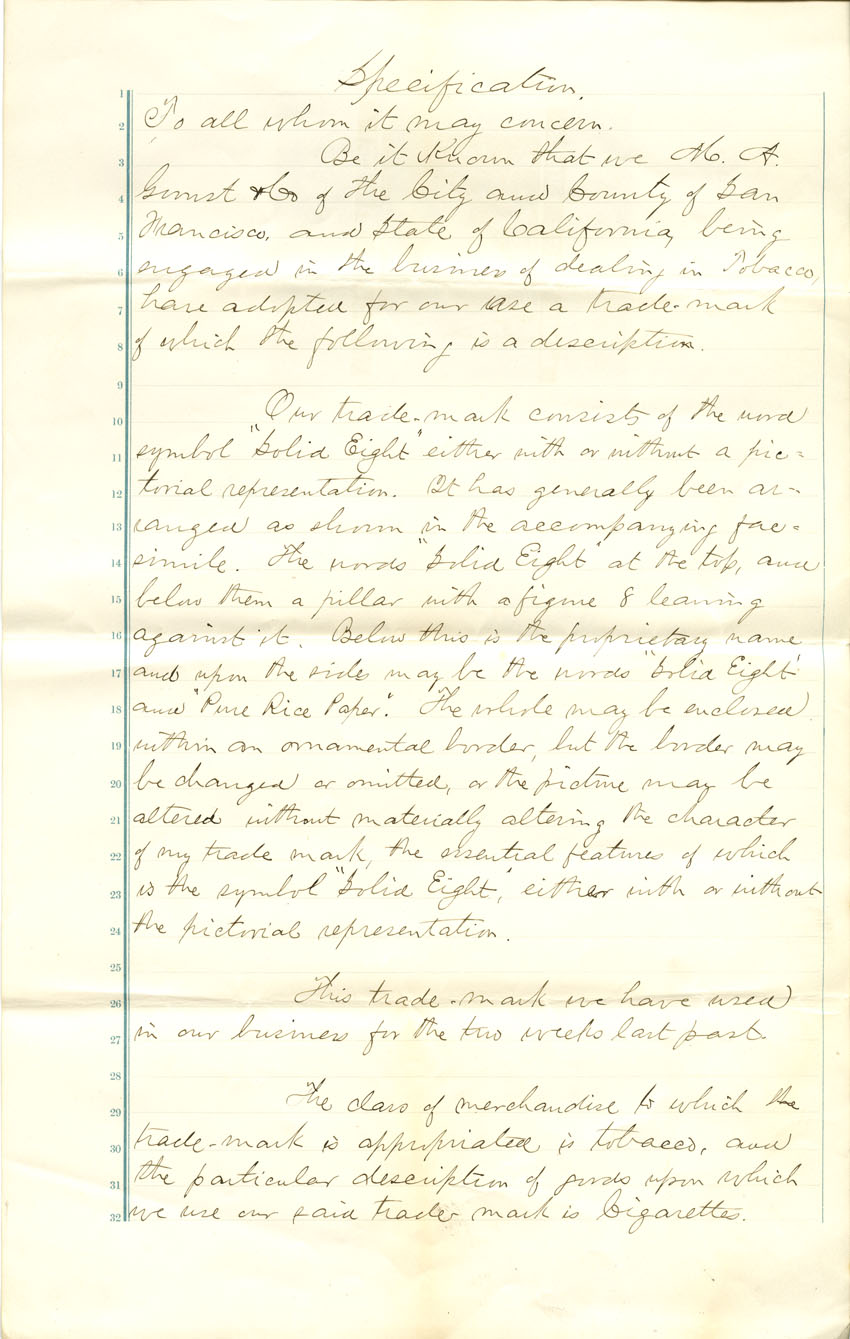 Specification.
1
2 To all whom it may concern.
3 Be it Known that we M. A.
4 Gunst & Co of the City and County of San
5 Francisco, and State of California, being
6 engaged in the business of dealing in Tobacco,
7 have adopted for our use a trade-mark
8 of which the following is a description.
9
10 Our trade-mark consists of the word
11 symbol "Solid Eight" either with or without a pic=
12 torial representation. It has generally been ar-
13 ranged as shown in the accompanying fac=
14 simile. The words "Solid Eight" at the top, and
15 below them a pillar with a figure 8 leaning
16 against it. Below this is the proprietary name
17 and upon the sides may be the words "Solid Eight"
18 and "Pure Rice Paper". The whole may be enclosed
19 within an ornamental border, but the border may
20 be changed or omitted, or the picture may be
21 altered without materially altering the character
22 of my trade mark, the essential features of which
23 is the symbol "Solid Eight", either with or without
24 the pictorial representation.
25
26 This trade-mark we have used
27 in our business for the two weeks last past.
28
29 The class of merchandise to which the
30 trade-mark is appropriated is tobacco, and
31 the particular description of goods upon which
32 we use our said trade-mark is Cigarettes.